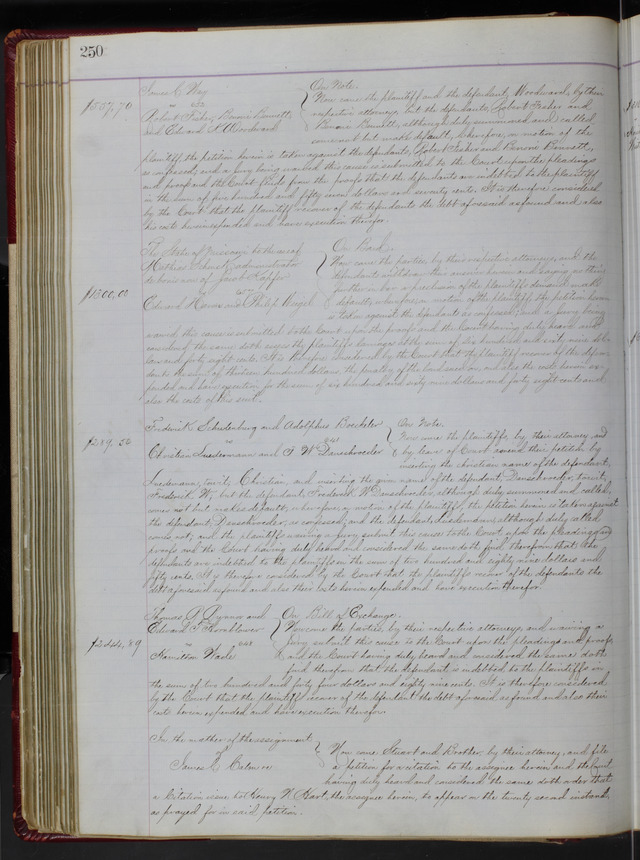 250
James C. Way
$507.70
vs 
Robert Fisher, Bernie Burnett,
and Edward N. Woodward
On Note.
Now come the plaintiff and the defendant, Woodward, by their
respective attorneys, but the defendants, Robert Fisher and
Burnett, although duly summoned and called,
come not but make default; wherefore, on motion of the
plaintiff the petition herein is taken against the defendants, Robert Fisher and Burnett,
as confessed; and a jury being waived this cause is submitted to the Court upon the pleadings
and proofs and the Court finds from the proofs that the defendants are indebted to the plaintiff
in the sum of five hundred and fifty seven dollars and seventy cents. It is therefore considered
by the Court that the plaintiff recover of the defendants the debt aforesaid as found and also
his costs herein expended and have execution therefor.
The State of Missouri to the use of
administrator
de bonis non of Jacob
$1300,00
vs
Edward and Philip
On Bond.
Now come the parties, by their respective attorneys, and the
defendants withdraw the answer herein and saying nothing
further in bar or preclusion of the plaintiffs demand make
default; wherefore, on motion of the plaintiff, the petition herein
is taken against the defendants as confessed; and a jury being
waived this cause is submitted to the Court upon the proofs and the Court having duly heard and
considered the same doth assess the plaintiffs damages at the sum of six hundred and sixty nine dol-
lars and forty eight cents. It is therefore considered by the Court that the plaintiff recover of the defen-
dants the sum of thirteen hundred dollars, the penalty of the bond and also the costs herein ex-
pended and have execution for the sum of six hundred and sixty nine dollars and forty eight cents and
also the costs of this suit.
Frederick Schulenburg and Adolphus Boeckeler
$289.50
vs
Christian and F. W. Danschroeder
On Note.
Now come the plaintiffs, by their attorney, and
by leave of Court amend their petition by
inserting the christian name of the defendant,
towit, Christian, and inserting the given name of the defendant, Danschroeder, towit,
Frederick W; but the defendant, Frederick W. Danschroeder, although duly summoned and called,
comes not but makes default; wherefore, on motion of the plaintiffs, the petition herein is taken against
the defendant, Danschroeder, as confessed; and the defendant, although duly called
comes not; and the plaintiffs waiving a jury submit this cause to the Court upon the pleadings and
proofs and the Court having duly heard and considered the same doth find therefrom that the
defendants are indebted to the plaintiffs in the sum of two hundred and eighty nine dollars and
fifty cents. It is therefore considered by the Court that the plaintiffs recover of the defendants the
debt aforesaid as found and also their costs herein expended and have execution therefor.
Thomas P. and
Edward F. Hornblower
$244,89
vs
Hamilton Wade
On Bill of Exchange.
Now come the parties, by their respective attorneys, and waiving a
jury submit this cause to the Court upon the pleadings and proofs,
and the Court having duly heard and considered the same doth
find therefrom that the defendant is indebted to the plaintiffs in
the sum of two hundred and forty four dollars and eighty nine cents. It is therefore considered
by the Court that the plaintiffs recover of the defendant the debt aforesaid as found and also their
costs herein expended and have execution therefor.
In the matter of the assignment
of
James
Now come Stuart and Brother, by their attorney, and file
a petition for a citation to the assignee herein and the Court
having duly heard and considered the same doth order that
a citation issue to Henry N. Hart, the assignee herein, to appear on the twenty second instant,
as prayed for in said petition.